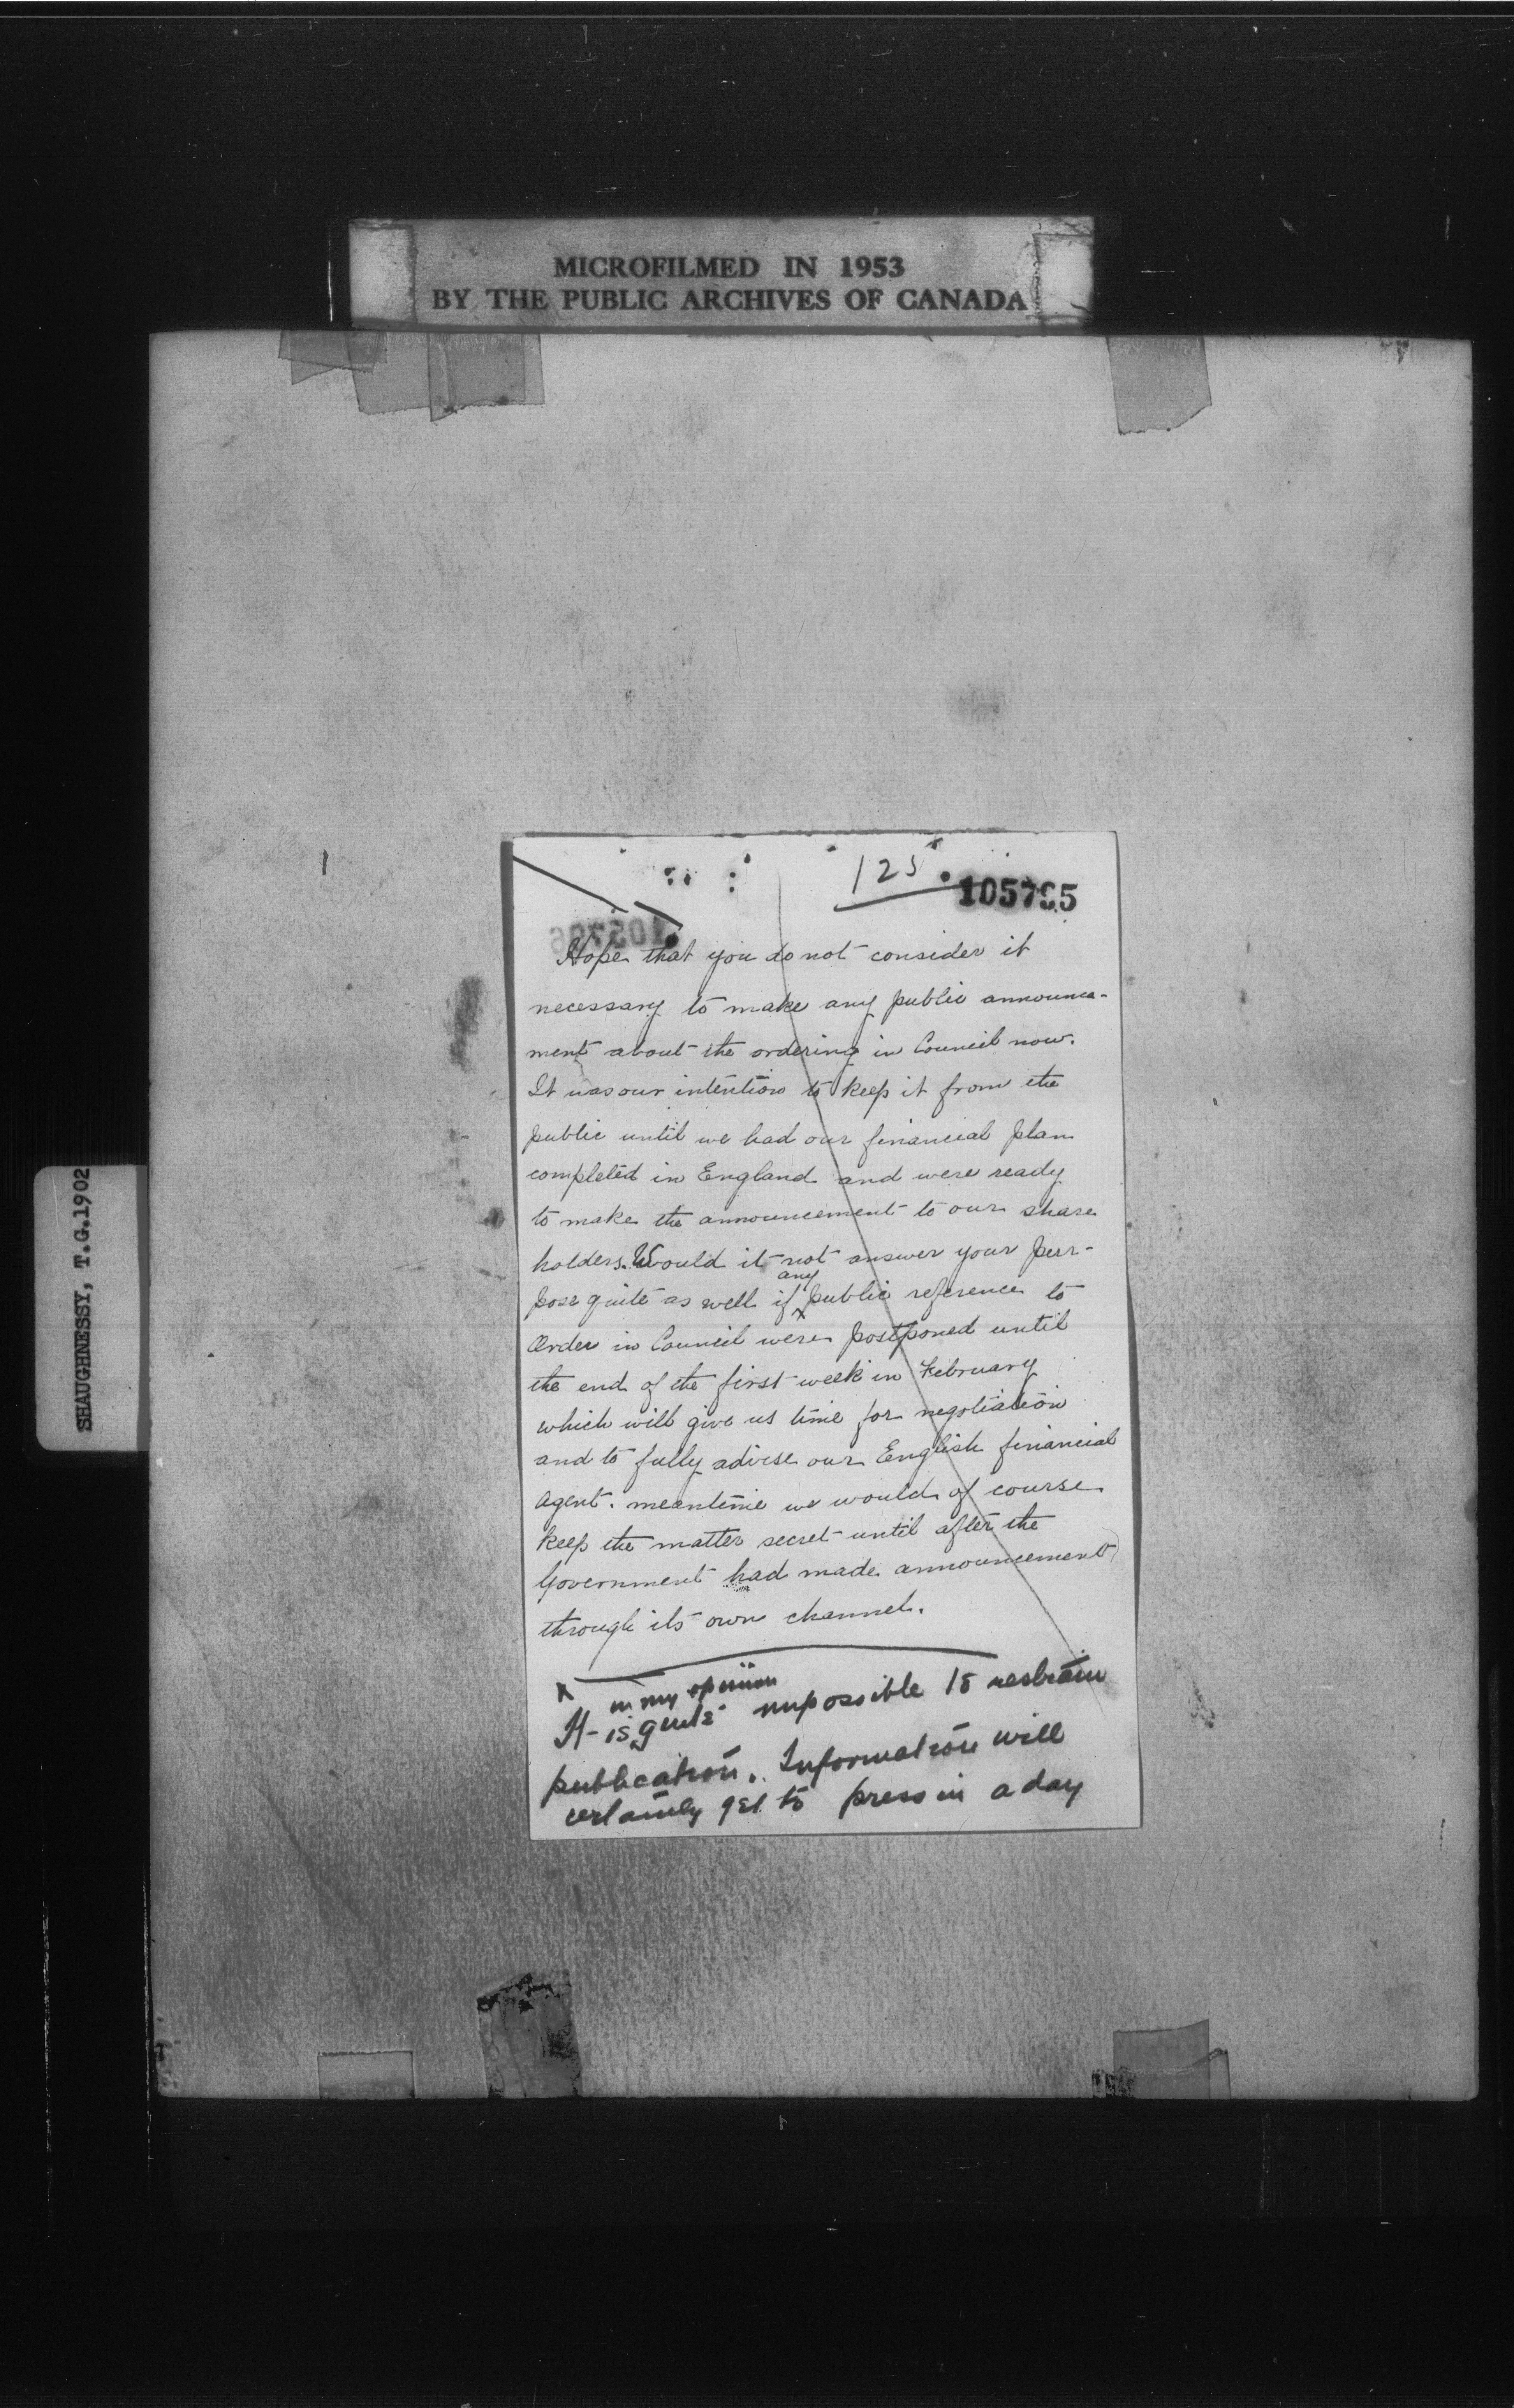 MICROFILMED IN 1953
BY THE PUBLIC ARCHIVES OF CANADA
SHAUGHNESSY, T.G.1902
125
105795
Hope that you do not consider it
necessary to make any public announce-
ment about the ordering in Council now.
It was our intention to keep it from the
public until we had our financial plan
completed in England and were ready
to make the announcement to our share
holders. Would it not answer your pur-
pose quite as well if any public reference to
Order in Council were postponed until
the end of the first week in February
which will give us time for negotiation
and to fully advise our English financial
agent. meantime we would of course
keep the matter secret until after the
Government had made announcement
through its own channel.
in my opinion
It is quite impossible to restrain
publication. Information will
certainly get to press in a day